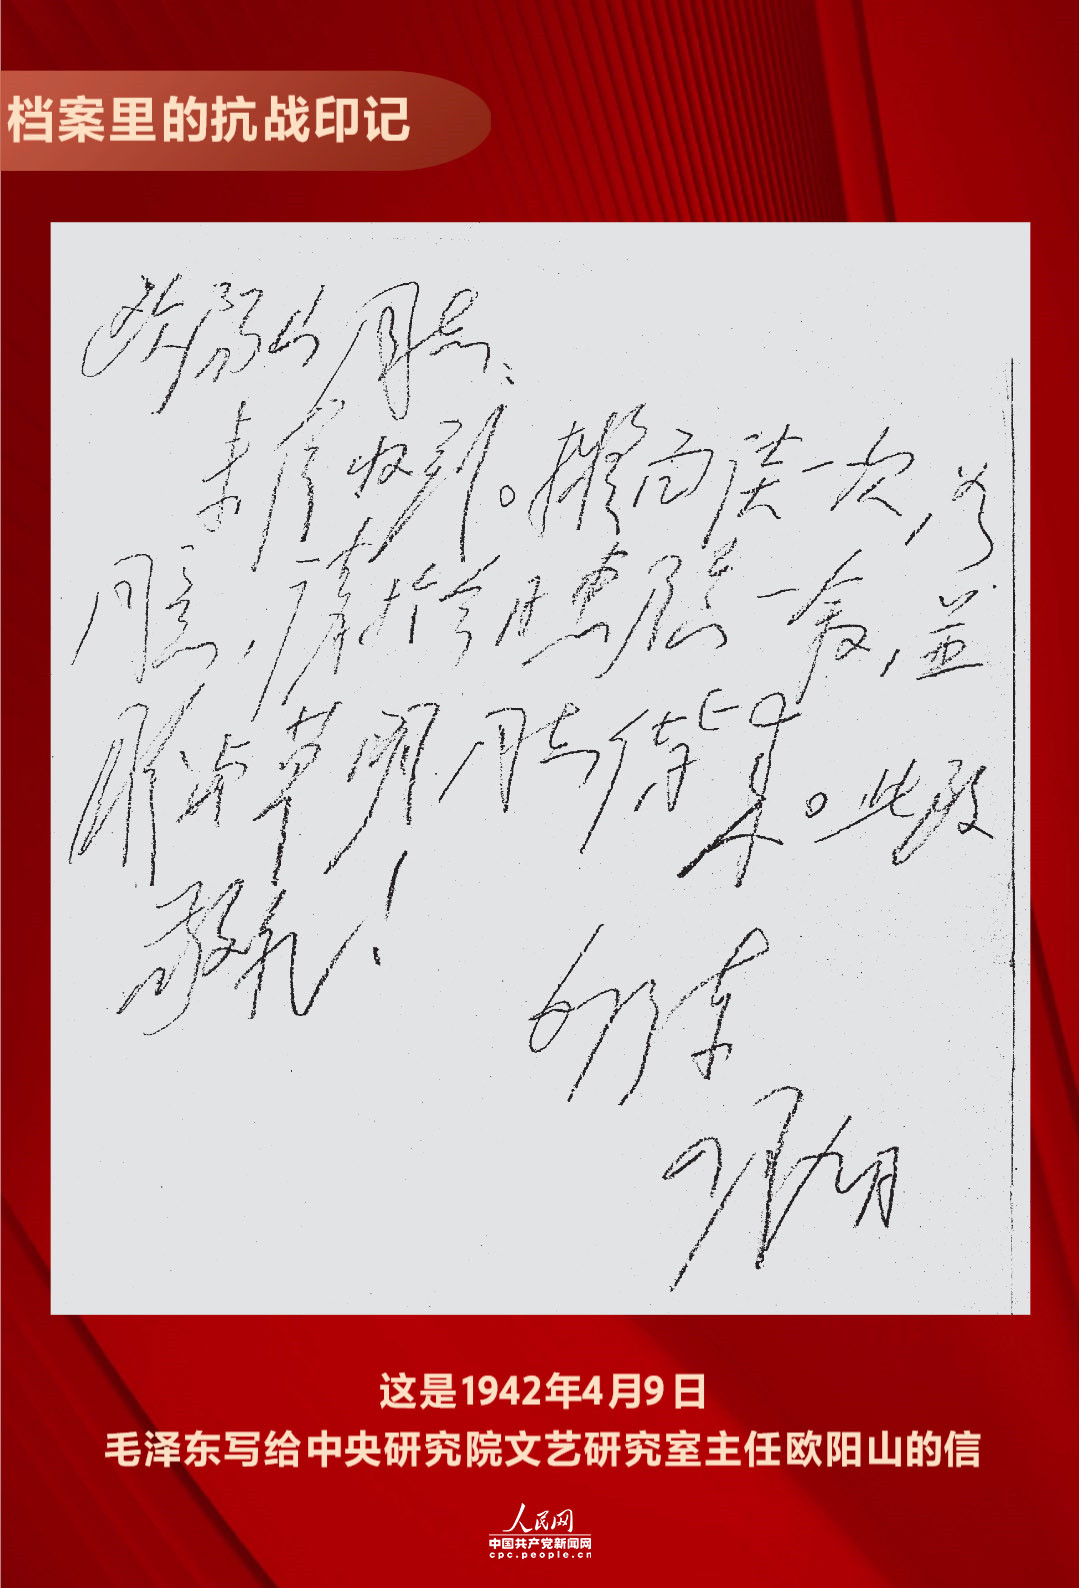 档案里的抗战印记
欧阳山同志：
来信收到。拟面谈一次，如
同意，请于今日惠临一叙，並
盼与草明同志偕来。此致
敬礼！
毛泽东
四月九日
这是1942年4月9日
毛泽东写给中央研究院文艺研究室主任欧阳山的信
人民网
中国共产党新闻网
cpc.people.cn